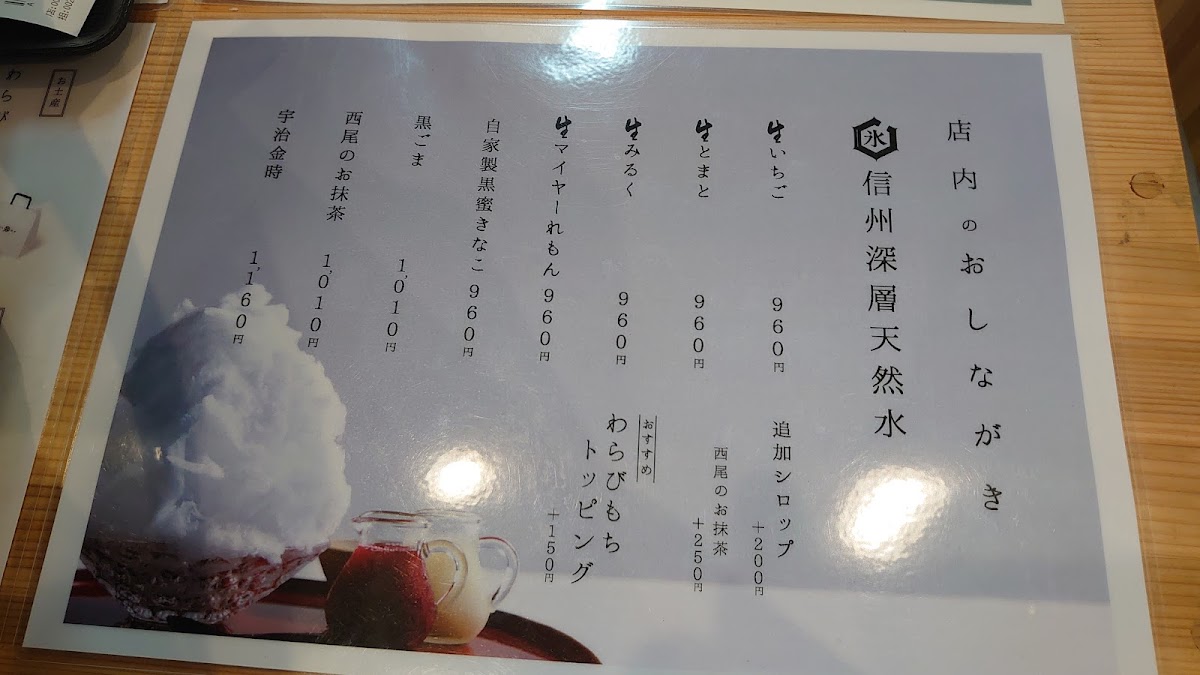 店内のおしながき
氷 信州深層天然水
生いちご 960円
生とまと 960円
生みるく 960円
生マイヤーれもん 960円
自家製黒蜜きなこ 960円
黒ごま 1,010円
西尾のお抹茶 1,010円
宇治金時 1,160円
追加シロップ +200円
西尾のお抹茶 +250円
おすすめ
わらびもち
トッピング +150円
お土産
わらび